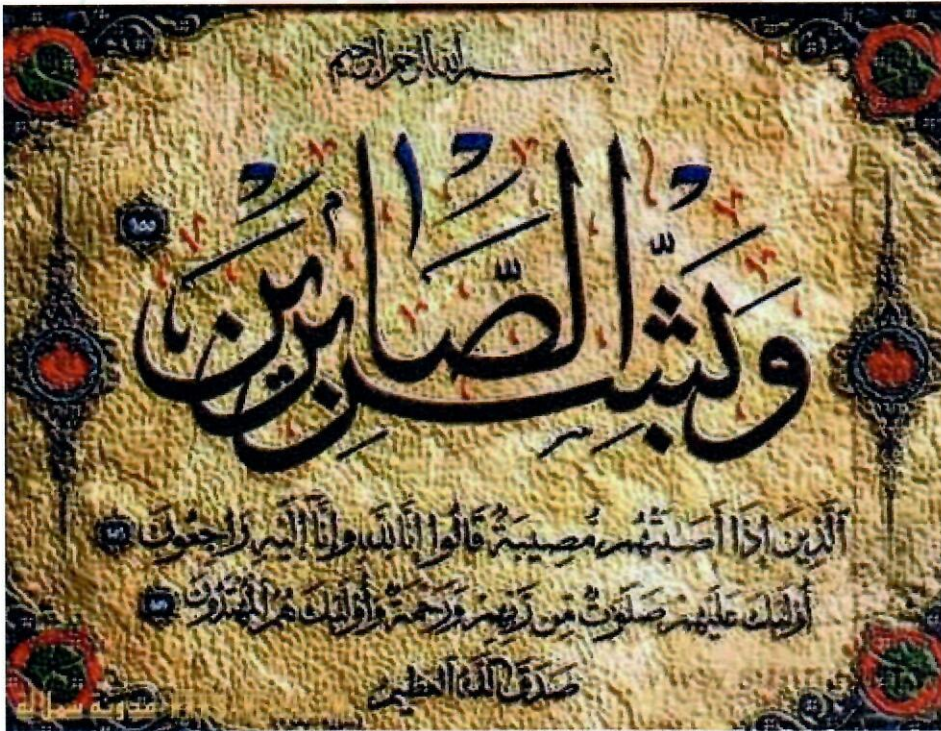 بسم الله الرحمن الرحيم
وَبَشِّرِ الصَّابِرِينَ ١٥٥
ٱلَّذِينَ إِذَآ أَصَٰبَتْهُم مُّصِيبَةٌ قَالُوٓا۟ إِنَّا لِلَّهِ وَإِنَّآ إِلَيْهِ رَٰجِعُونَ
أُو۟لَٰٓئِكَ عَلَيْهِمْ صَلَوَٰتٌ مِّن رَّبِّهِمْ وَرَحْمَةٌ وَأُو۟لَٰٓئِكَ هُمُ ٱلْمُهْتَدُونَ
صدق الله العظيم